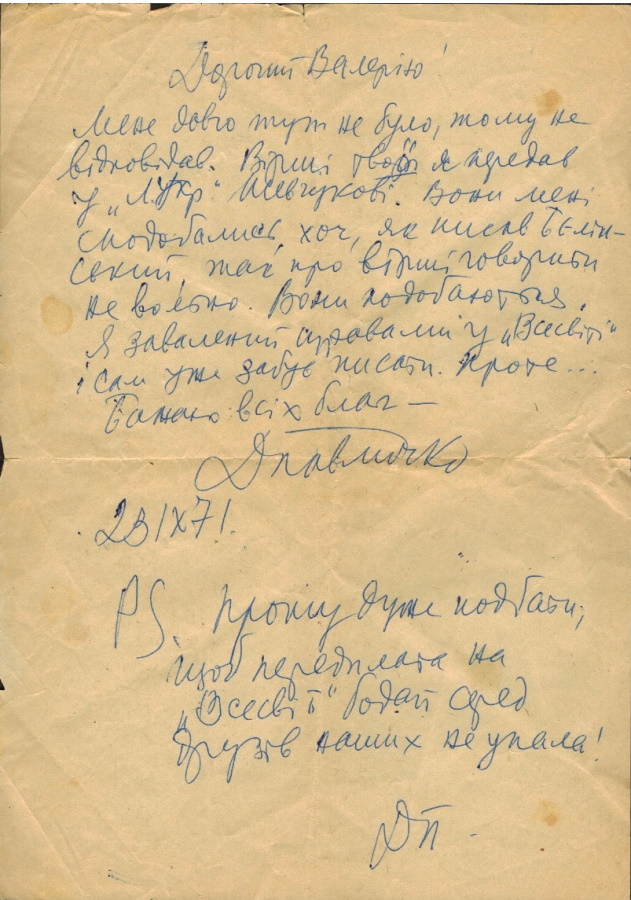 Дорогий Валерію!
Мене довго тут не було, тому не
відповідав. Вірші твої я передав
у „Л.Укр." Шевчукові. Вони мені
сподобались, хоч, як писав Бєлін-
ський, так про вірші говорити
не вольно. Вони подобаються.
Я завалений справами у „Всесвіті"
і сам уже забув писати. Проте...
Бажаю всіх благ —
ДПавличко
23 IX 71.
PS. Прошу дуже подбати,
щоб передплата на
„Всесвіт" бодай серед
друзів наших не упала!
ДП.